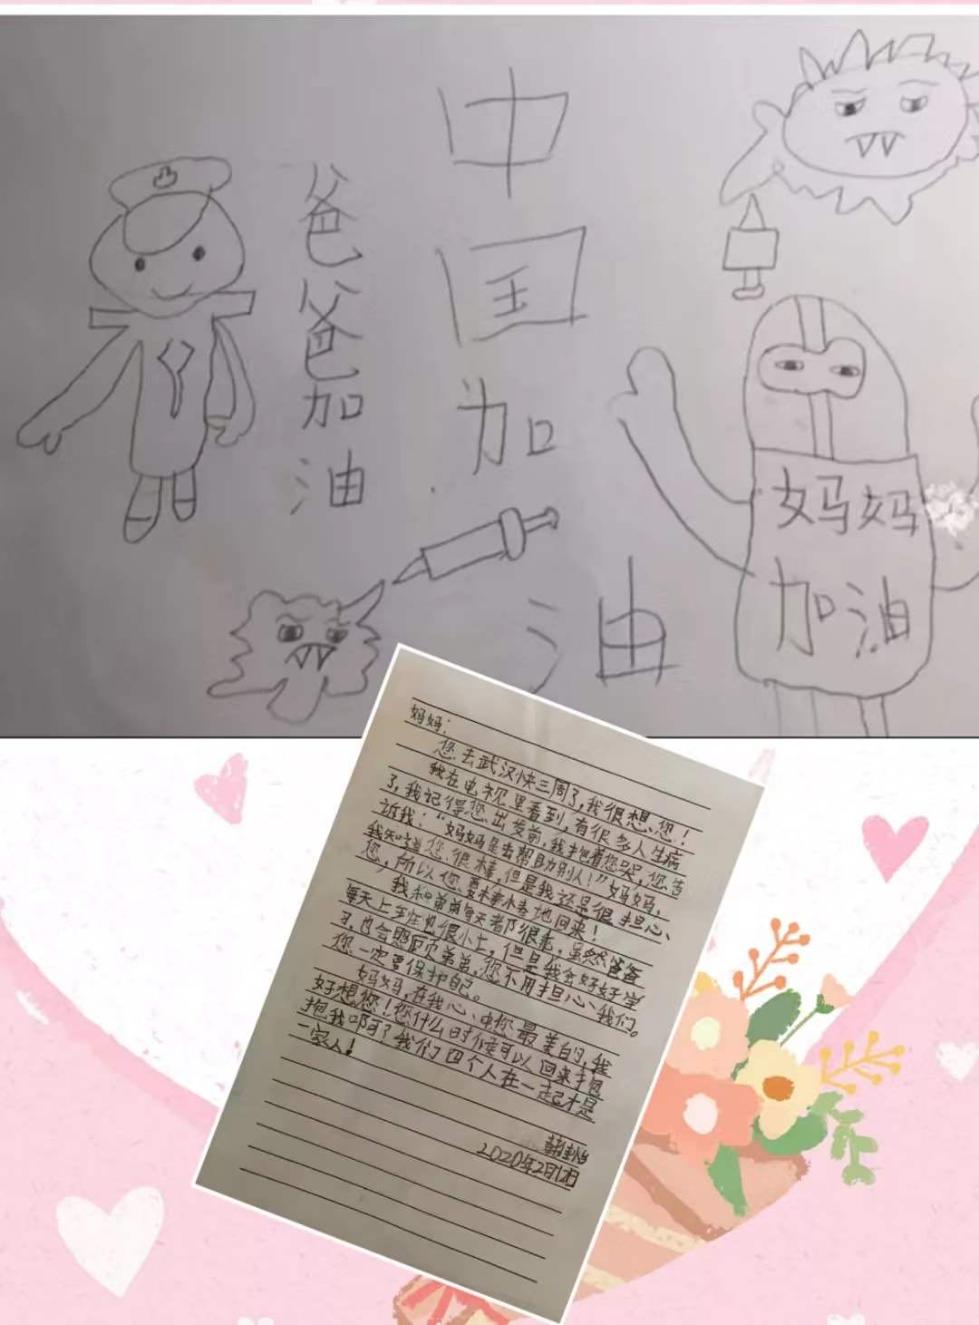 爸爸加油
中国加油
妈妈
加油
妈妈:
您去武汉快三周了,我很想您!
我在电视里看到,有很多人生病
了,我记得您出发前,我抱着您哭,您告
诉我:“妈妈是去帮助别人!”妈妈,
我知道您很棒,但是我还是很担心
您,所以您要棒棒地回来!
我和弟弟每天都很乖,虽然爸爸
每天上班也很小七,但是我会好好学
习,也会照顾弟弟,您不用担心我们。
您一定要保护自己。
妈妈,在我心中您最美的,我
好想您!您什么时候可以回来抱
抱我啊?我们四个人在一起才是
一家人!
2020年2月12日